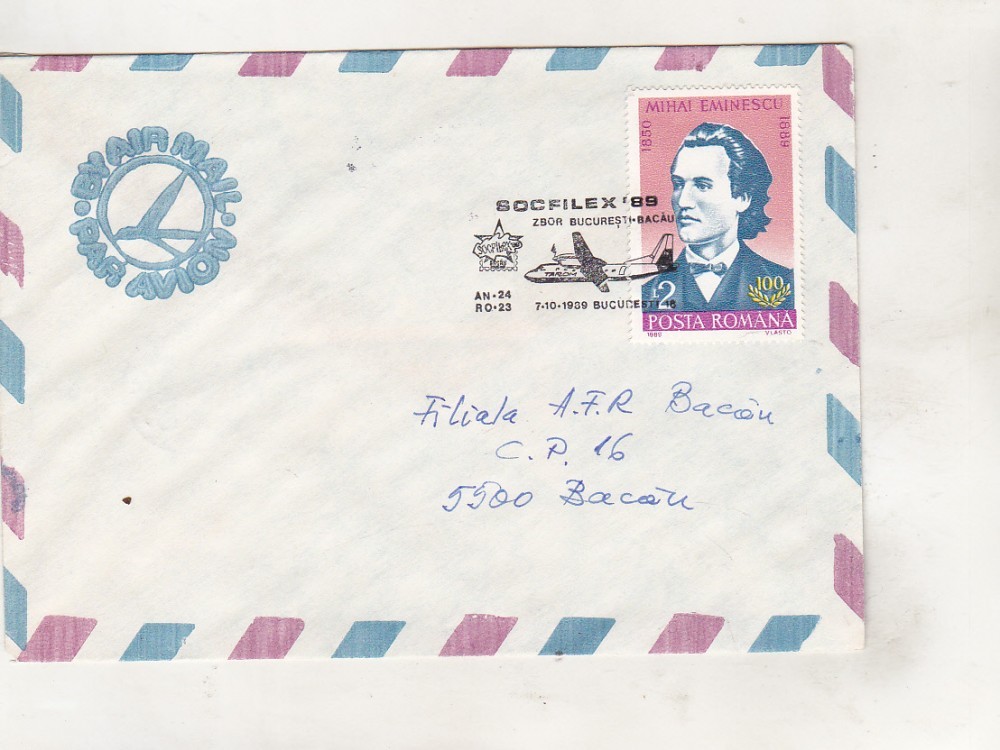 BY AIR MAIL
PAR AVION
MIHAI EMINESCU
1850
1889
SOCFILEX '89
ZBOR BUCUREȘTI-BACĂU
SOCFILEX
TAROM
AN-24
RO-23
7-10-1989 BUCUREȘTI 18
100
L2
POSTA ROMÂNA
1989
VLASTO
Filiala A.F.R Bacău
C.P. 16
5500 Bacău